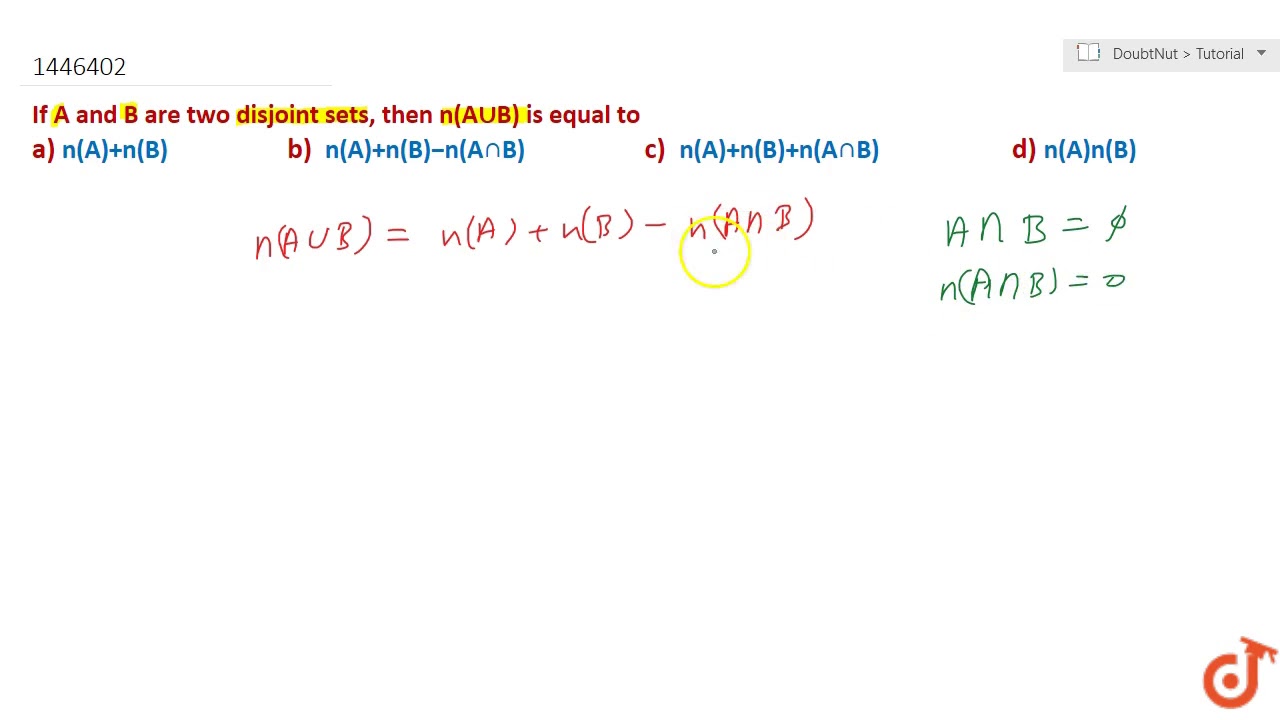 1446402
DoubtNut > Tutorial
If A and B are two disjoint sets, then n(A∪B) is equal to
a) n(A)+n(B) b) n(A)+n(B)−n(A∩B) c) n(A)+n(B)+n(A∩B) d) n(A)n(B)
n(A∪B) = n(A) + n(B) − n(A∩B)
A∩B = ϕ
n(A∩B) = 0